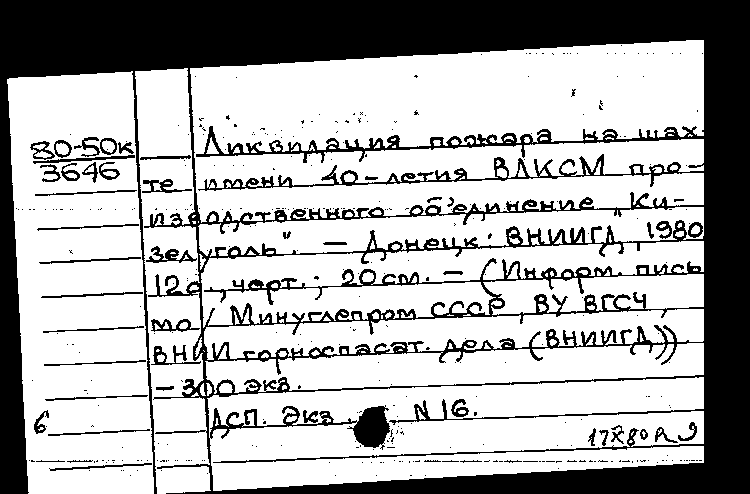 80-50к
3646
Ликвидация пожара на шах-
те имени 40-летия ВЛКСМ про-
изводственного об'единение „Ки-
зелуголь". — Донецк: ВНИИГД, 1980
12с., черт.; 20см. — (Информ. пись
мо / Минуглепром СССР, ВУ ВГСЧ,
ВНИИ горноспасат. дела (ВНИИГД))
— 300 экз.
6 ДСП. Экз. N 16.
17X80